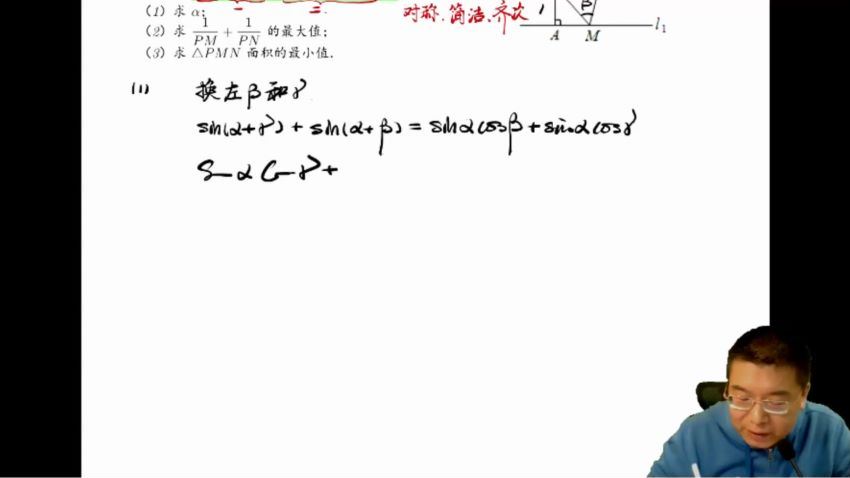 (1) 求 α;
(2) 求 1/PM + 1/PN 的最大值;
(3) 求 △PMN 面积的最小值.
一 二.
对称.简洁.齐次
β
A M l₁
(1) 换左β和γ
sin(α+γ) + sin(α+β) = sinαcosβ + sinαcosγ